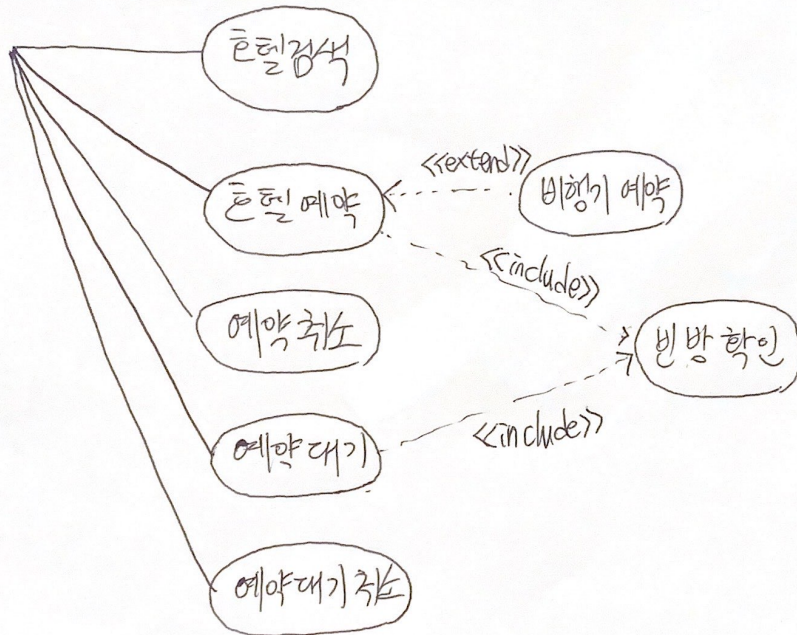 호텔검색
<<extend>>
호텔 예약
비행기 예약
<<include>>
예약취소
빈방확인
예약대기
<<include>>
예약대기취소